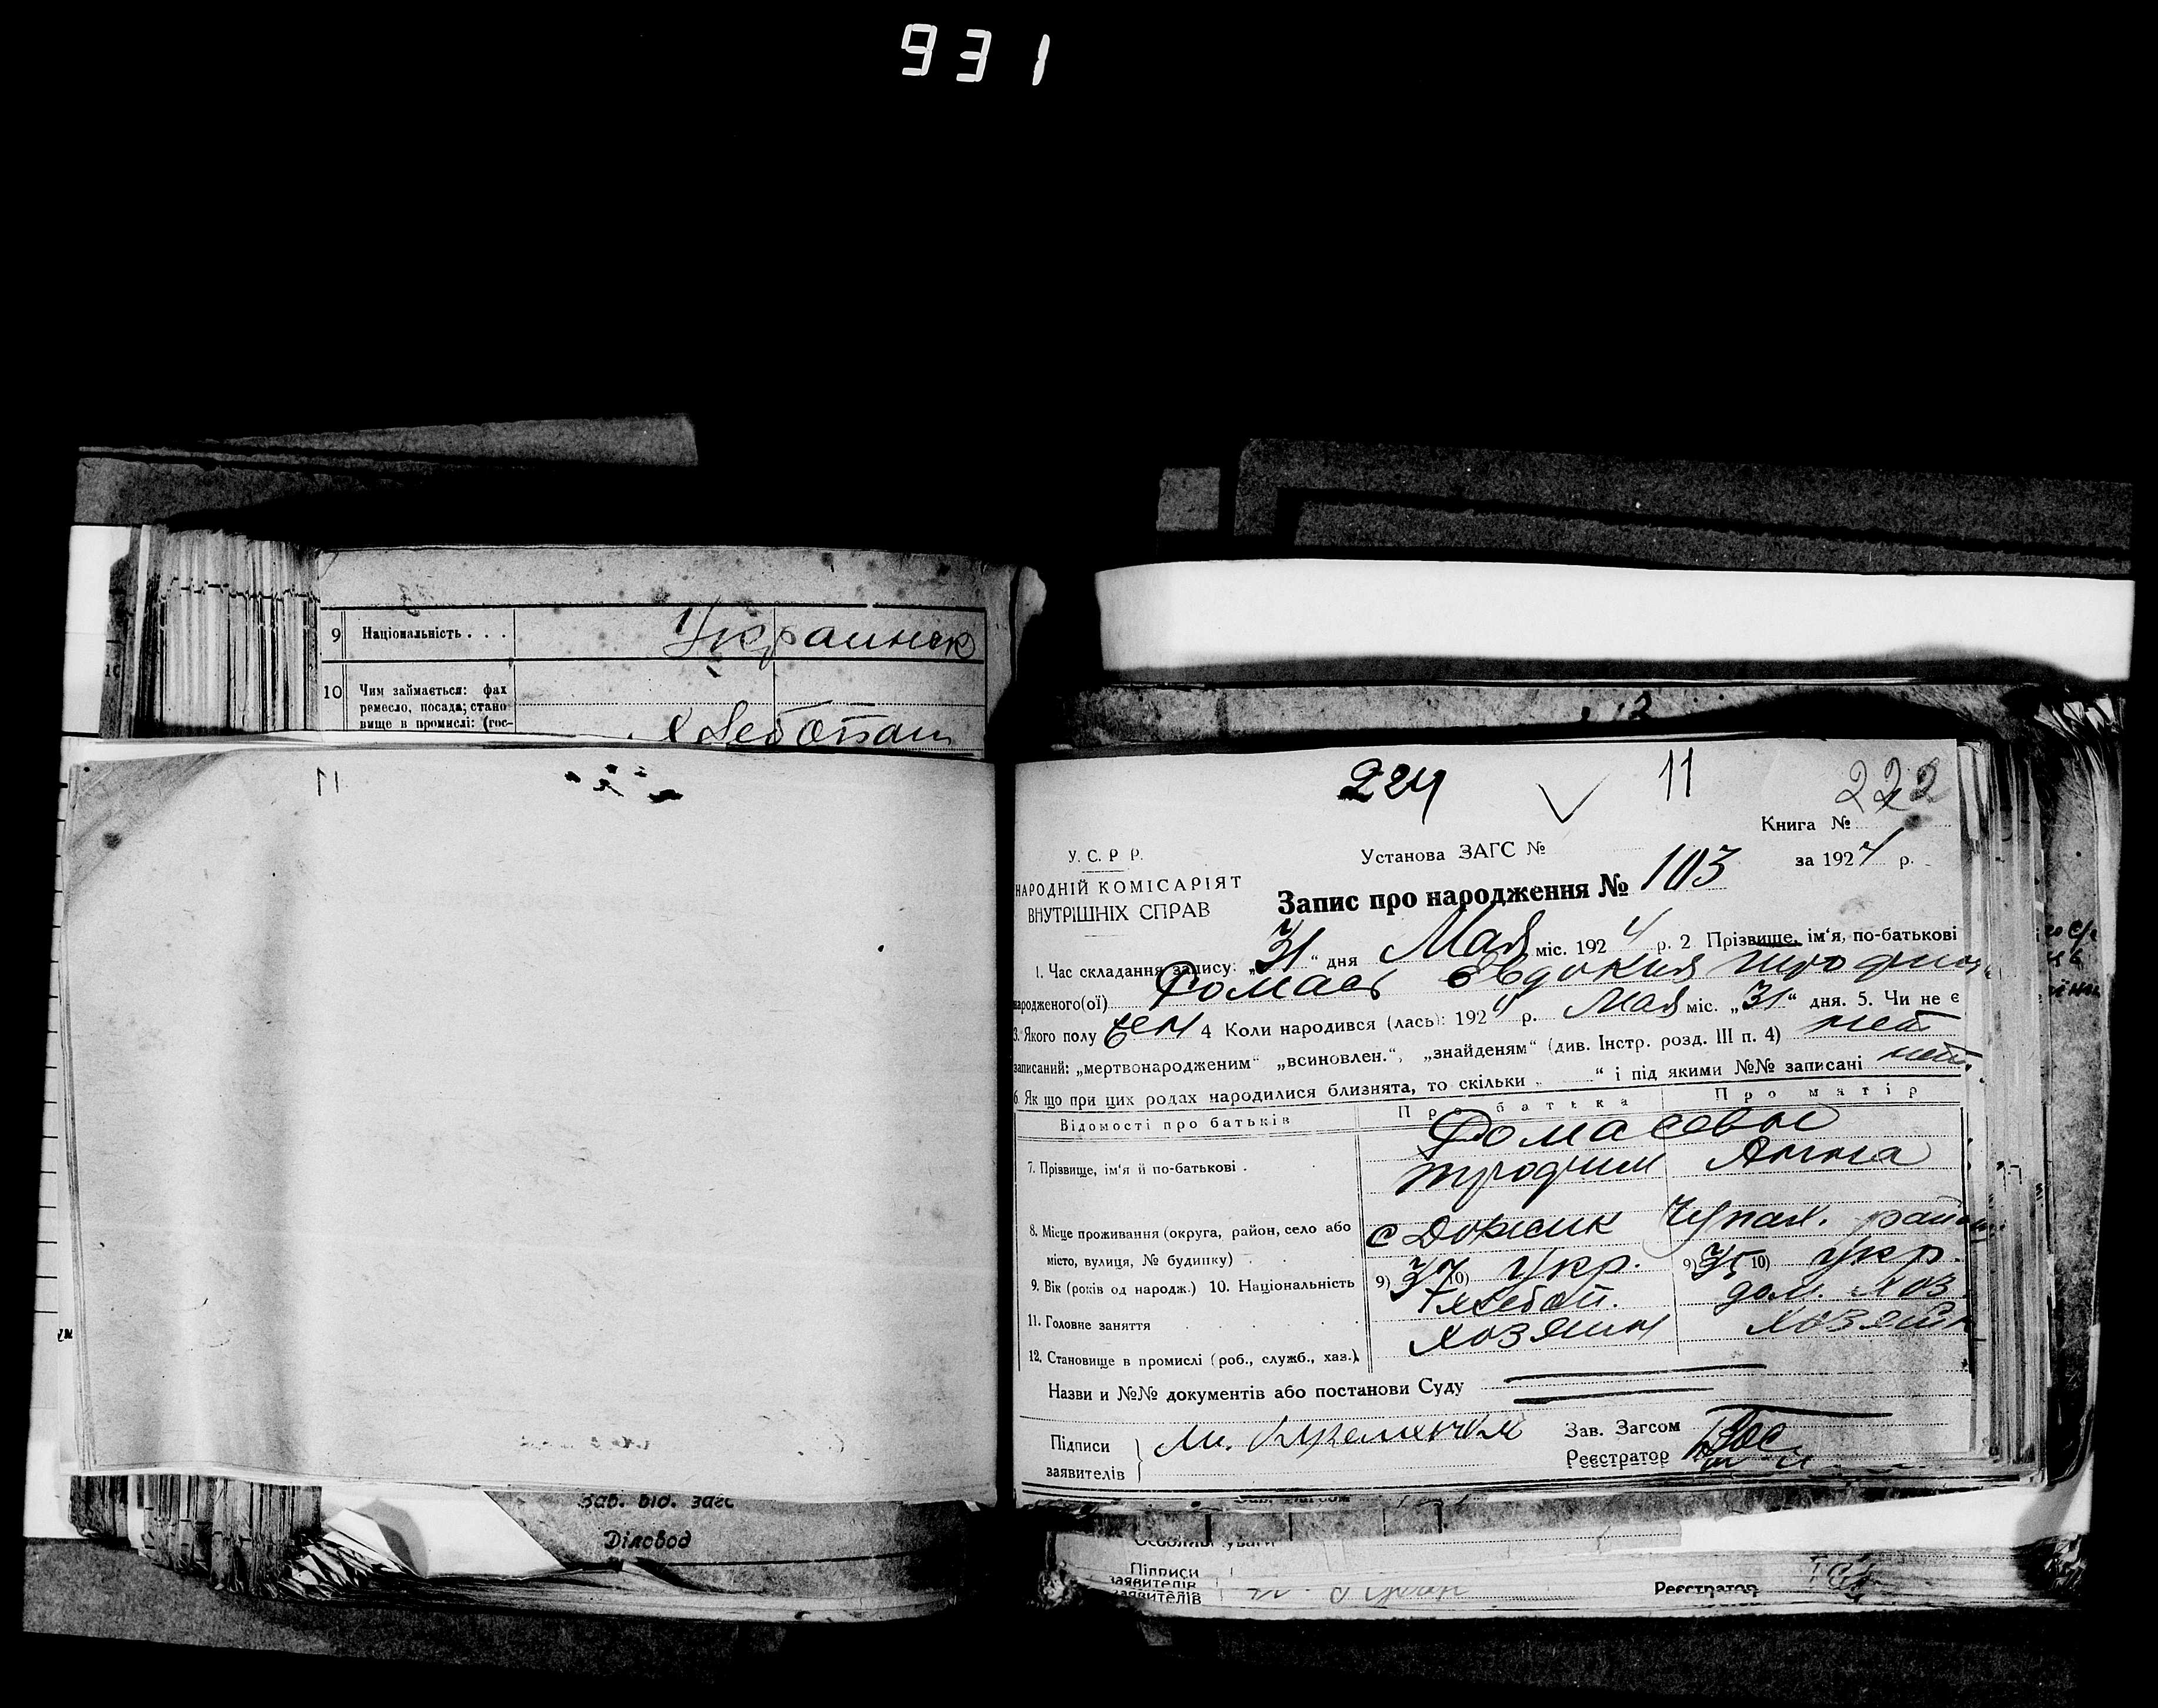 931
9 Національність . . . Украинск
10 Чим займається: фах
ремесло, посада; стано
вище в промислі: (гос-
хлебопаш
224 11 222
Книга №
У. С. Р Р. Установа ЗАГС № за 1924 р.
НАРОДНІЙ КОМІСАРІЯТ
ВНУТРІШНІХ СПРАВ
Запис про народження № 103
1. Час складання запису: „31“ дня Мая міс. 1924 р. 2 Прізвище, ім'я, по-батькові
народженого(ої) Ромась Евдокия
3. Якого полу жен 4 Коли народився (лась): 1924 р. Мая міс. „31“ дня. 5. Чи не є
записаний: „мертвонародженим“ „всиновлен.“, „знайденям“ (див. Інстр. розд. III п. 4) нет
6. Як що при цих родах народилися близнята, то скільки „ “ і під якими №№ записані нет
Відомості про батьків Про батька Про матір
Ромасевы
7. Прізвище, ім'я й по-батькові . Трофим Анна
8. Місце проживання (округа, район, село або
місто, вулиця, № будинку) . с Должик
9. Вік (років од народж.) 10. Національність 9) 37 10) Укр. 9) 35 10) Укр.
11. Головне заняття хлебоп. дом. хоз
12. Становище в промислі (роб., служб., хаз.). хозяин хозяйк
Назви и №№ документів або постанови Суду
Підписи
заявителів
Зав. Загсом
Реєстратор
Зав. від. загс
Діловод
Підписи
заявителів
заявителів
Реєстратор